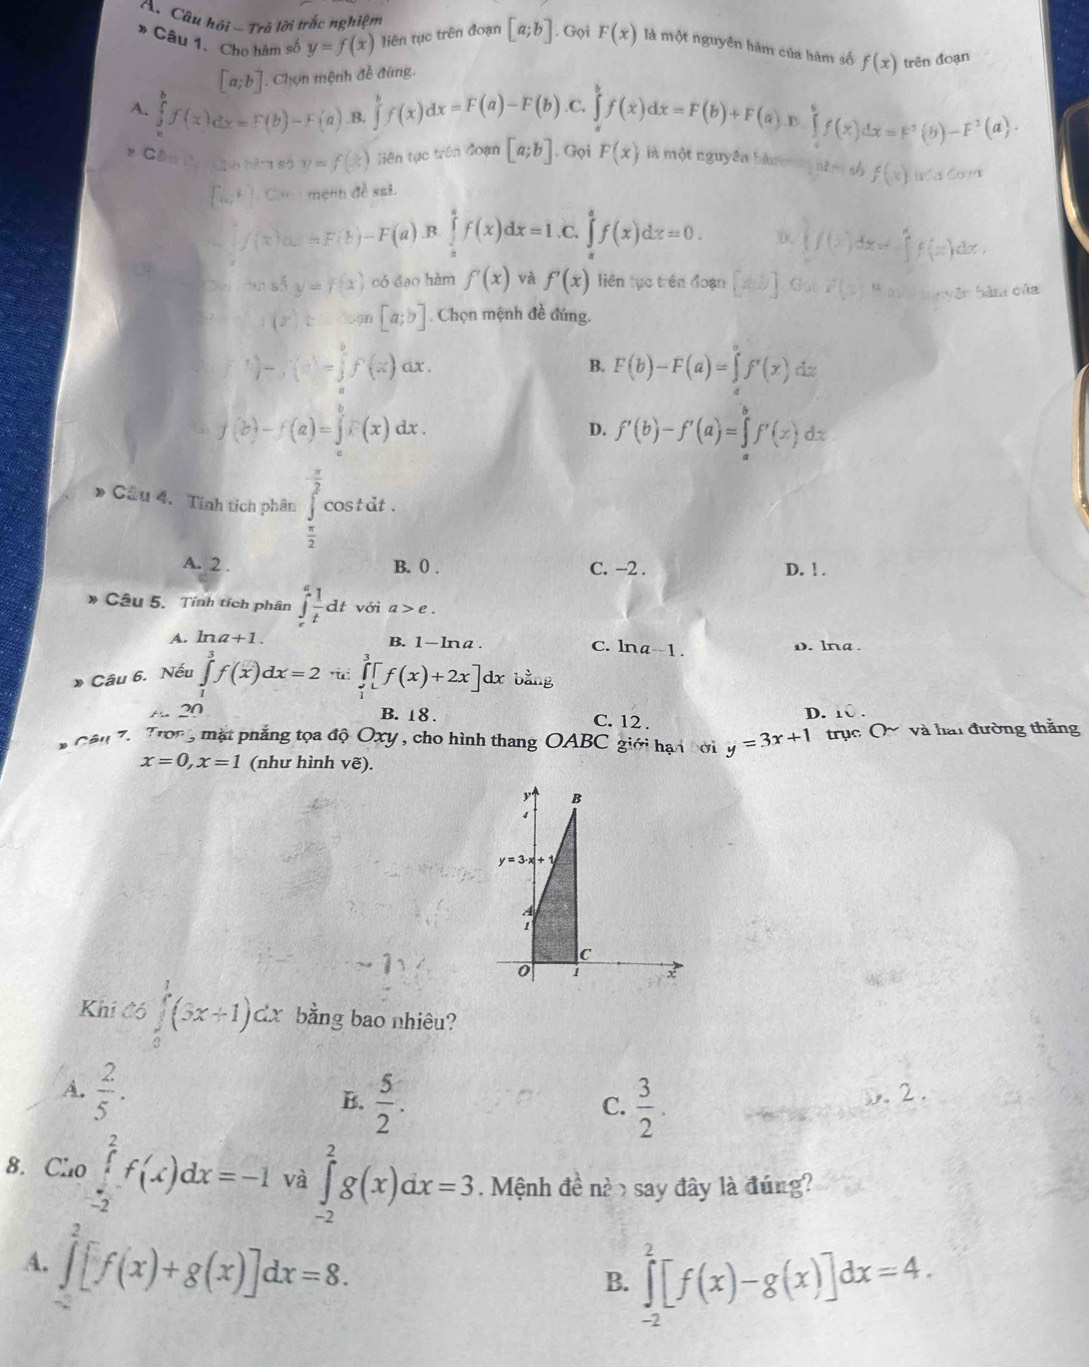 A. Câu hỏi – Trả lời trắc nghiệm
» Câu 1. Cho hàm số y = f(x) liên tục trên đoạn [a;b]. Gọi F(x) là một nguyên hàm của hàm số f(x) trên đoạn
[a;b]. Chọn mệnh đề đúng.
A. ∫_a^b f(x)dx = F(b) − F(a). B. ∫_a^b f(x)dx = F(a) − F(b). C. ∫_a^b f(x)dx = F(b) + F(a). D. ∫_a^b f(x)dx = F²(b) − F²(a).
» Câu hàm số y = f(x) liên tục trên đoạn [a;b]. Gọi F(x) là một nguyên hàm số f(x)
mệnh đề sai.
f(x)dx = F(b) − F(a). B. ∫_a^a f(x)dx = 1. C. ∫_a^a f(x)dx = 0. D. f(x)dx = − ∫ f(x)dx.
số y = f(x) có đạo hàm f'(x) và f'(x) liên tục trên đoạn [a;b]. nguyên hàm của
[a;b]. Chọn mệnh đề đúng.
= ∫_a^b f'(x) dx.
B. F(b) − F(a) = ∫_a^b f'(x) dx
f(b) − f(a) = ∫_a^b F(x) dx.
D. f'(b) − f'(a) = ∫_a^b f'(x) dx
» Câu 4. Tính tích phân ∫_{π/2}^{-π/2} cos t dt.
A. 2. B. 0. C. −2. D. 1.
» Câu 5. Tính tích phân ∫_e^a 1/t dt với a > e.
A. ln a + 1. B. 1 − ln a. C. ln a − 1. D. ln a.
» Câu 6. Nếu ∫_1^3 f(x)dx = 2 thì ∫_1^3 [f(x) + 2x]dx bằng
A. 20 B. 18. C. 12. D. 10.
» Câu 7. Trong mặt phẳng tọa độ Oxy, cho hình thang OABC giới hạn bởi y = 3x + 1 trục Ox và hai đường thẳng
x = 0, x = 1 (như hình vẽ).
y
B
4
y = 3·x + 1
A
1
C
O 1 x
Khi đó ∫_0^1 (3x + 1)dx bằng bao nhiêu?
A. 2/5. B. 5/2. C. 3/2. D. 2.
8. Cho ∫_{-2}^2 f(x)dx = −1 và ∫_{-2}^2 g(x)dx = 3. Mệnh đề nào say đây là đúng?
A. ∫_{-2}^2 [f(x) + g(x)]dx = 8. B. ∫_{-2}^2 [f(x) − g(x)]dx = 4.